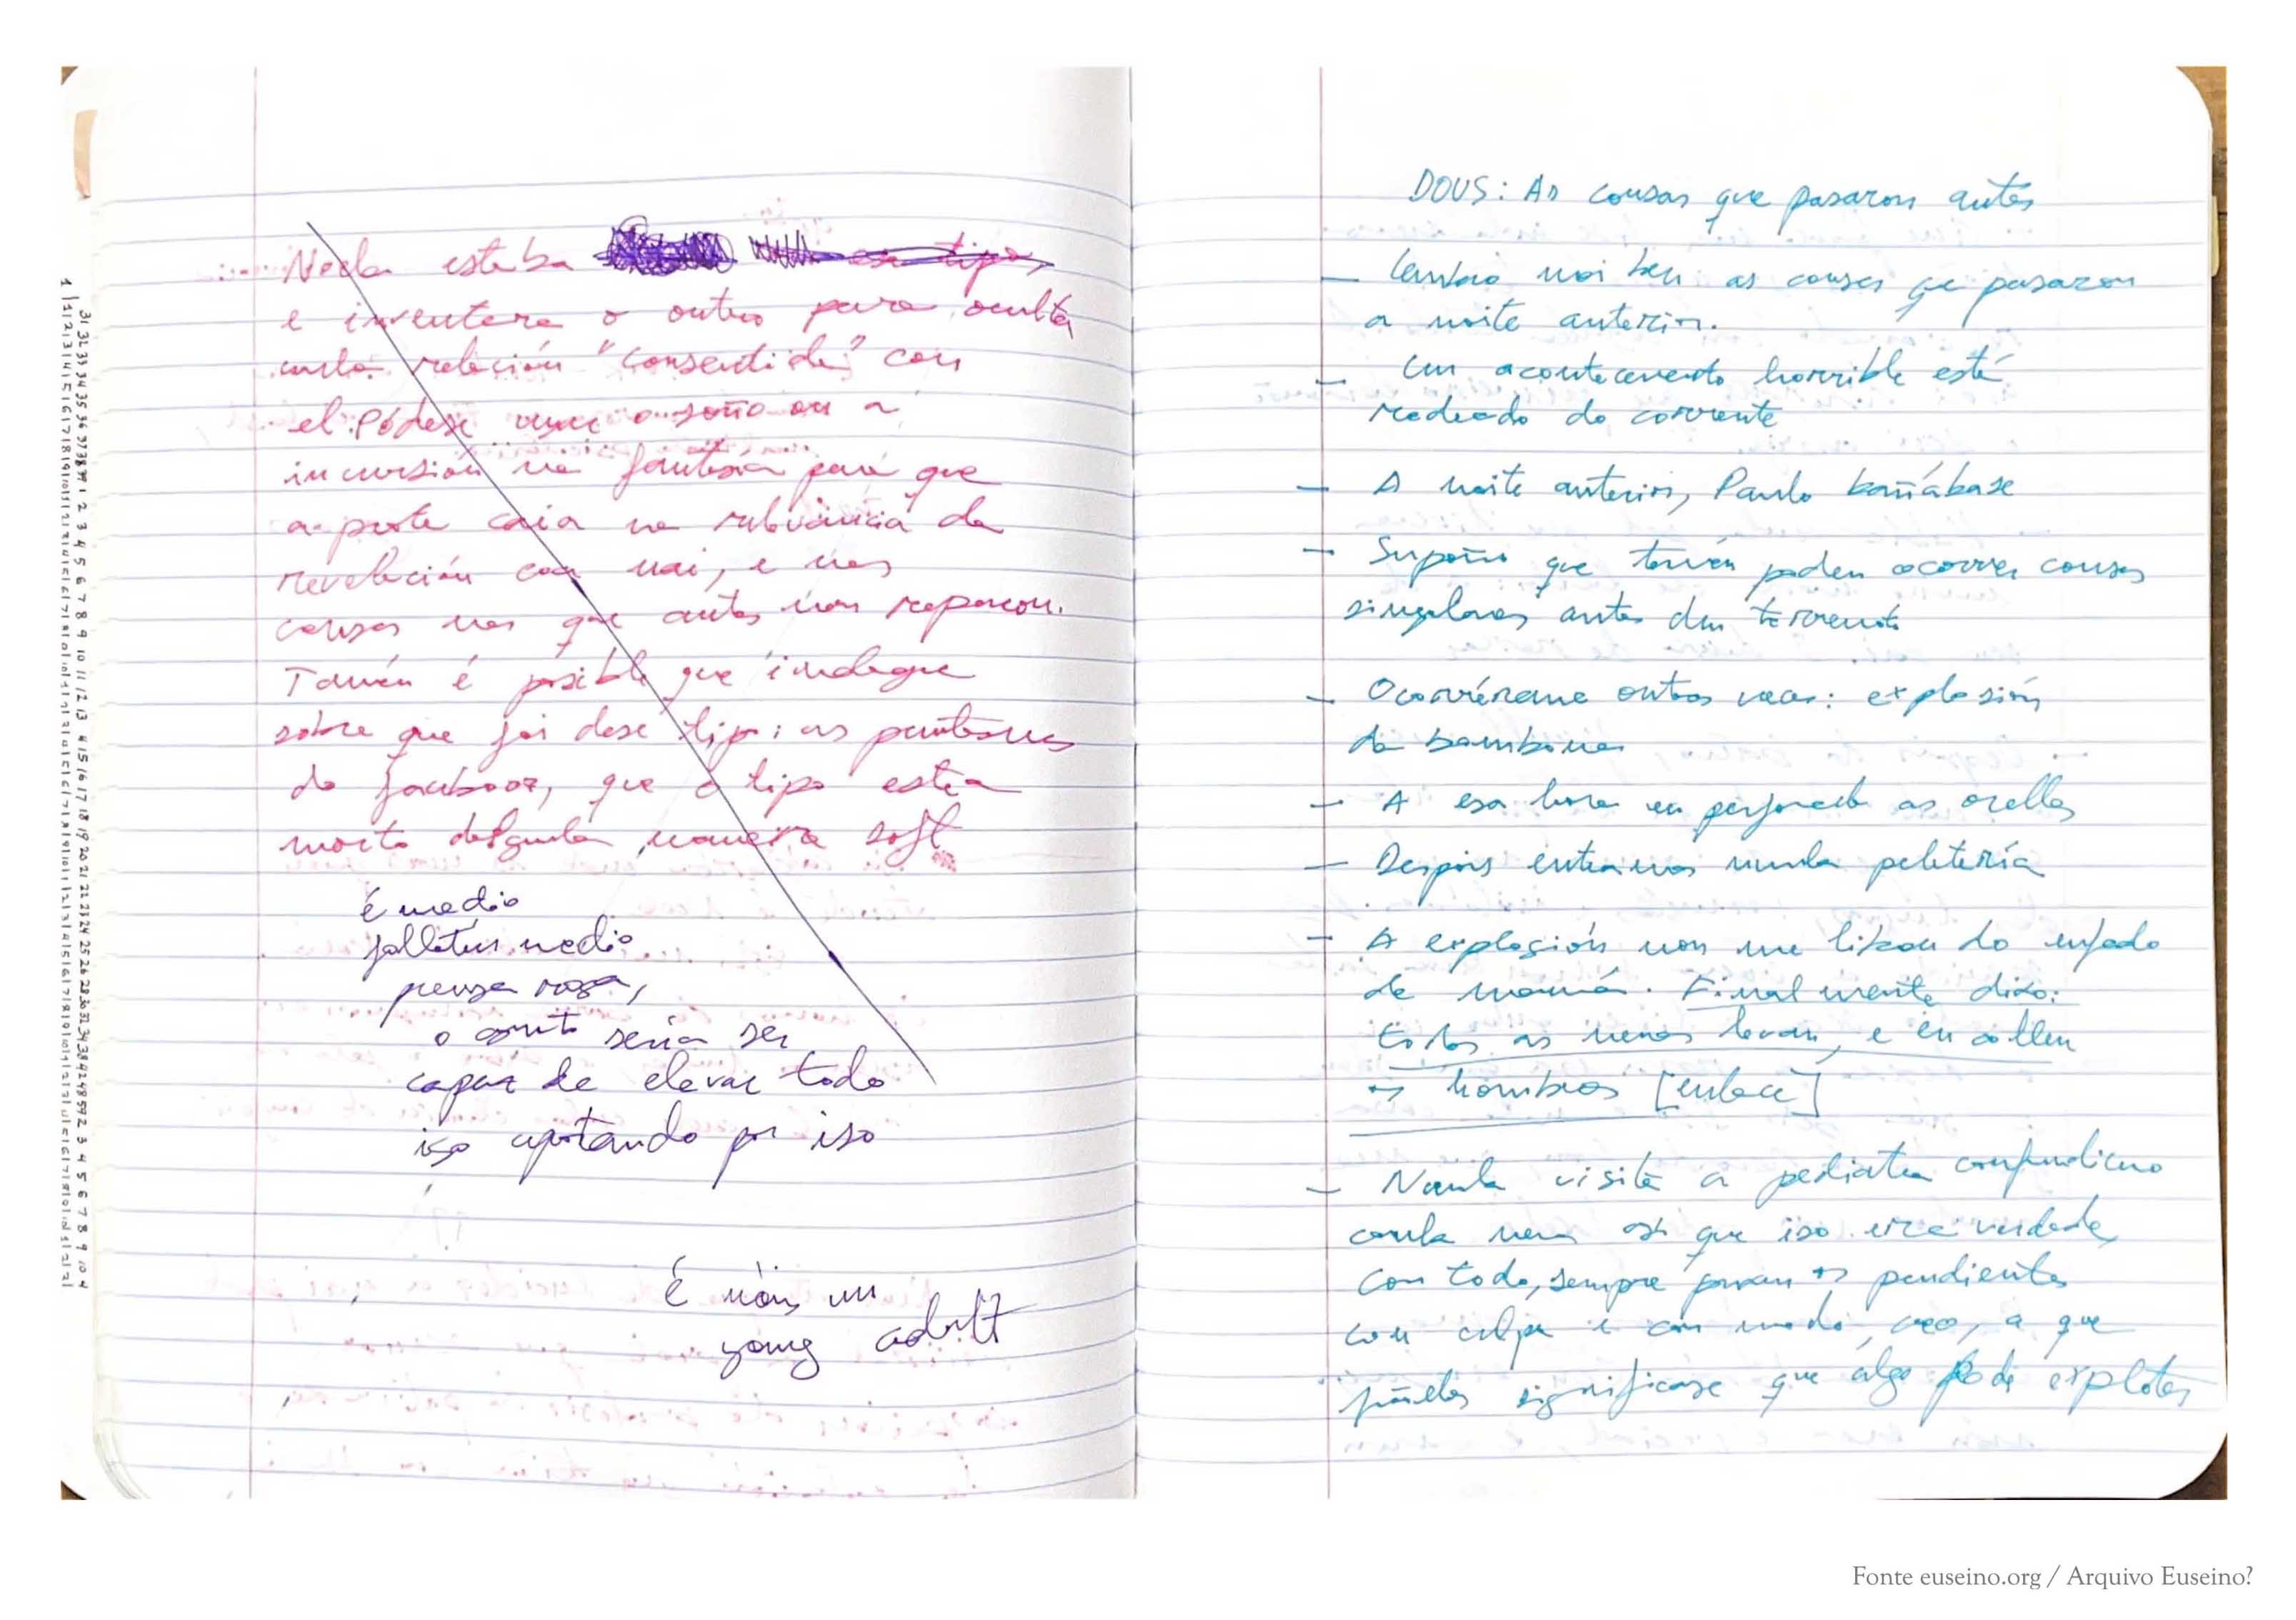 Neda estaba ese tipo,
e inventara o outro para ocultar
unha relación "consentida" con
el. Pódese usar o soño ou a
incursión na fantasía para que
a peste caia na relevancia da
revelación coa nai, e nas
cousas nas que antes non reparou.
Tamén é posible que indague
sobre que foi dese tipo: as pantasmas
do facebook, que o tipo estea
morto dalgunha maneira soft
é medio
folletín, medio
prensa rosa,
o conto sería ser
capaz de elevar todo
iso apostando por iso
É máis un
young adult
DOUS: As cousas que pasaron antes
– Lembro moi ben as cousas que pasaron
a noite anterior.
– Un acontecemento horrible está
rodeado do corrente
– A noite anterior, Paulo bañábase
– Supoño que tamén poden ocorrer cousas
singulares antes dun terremoto
– Ocorréranme outras veces: explosión
da bombona
– A esa hora eu perforando as orellas
– Despois entramos nunha peletería
– A explosión non me librou do enfado
de mamá. Finalmente dixo:
todas as nenas levan, e eu ollen
os hombros [enlace]
– Nunha visita a pediatra confundiume
cunha nena así que iso era verdade,
con todo, sempre puxen os pendientes
con culpa e con medo, creo, a que
poñelos significase que algo pode explotar
Fonte euseino.org / Arquivo Euseino?